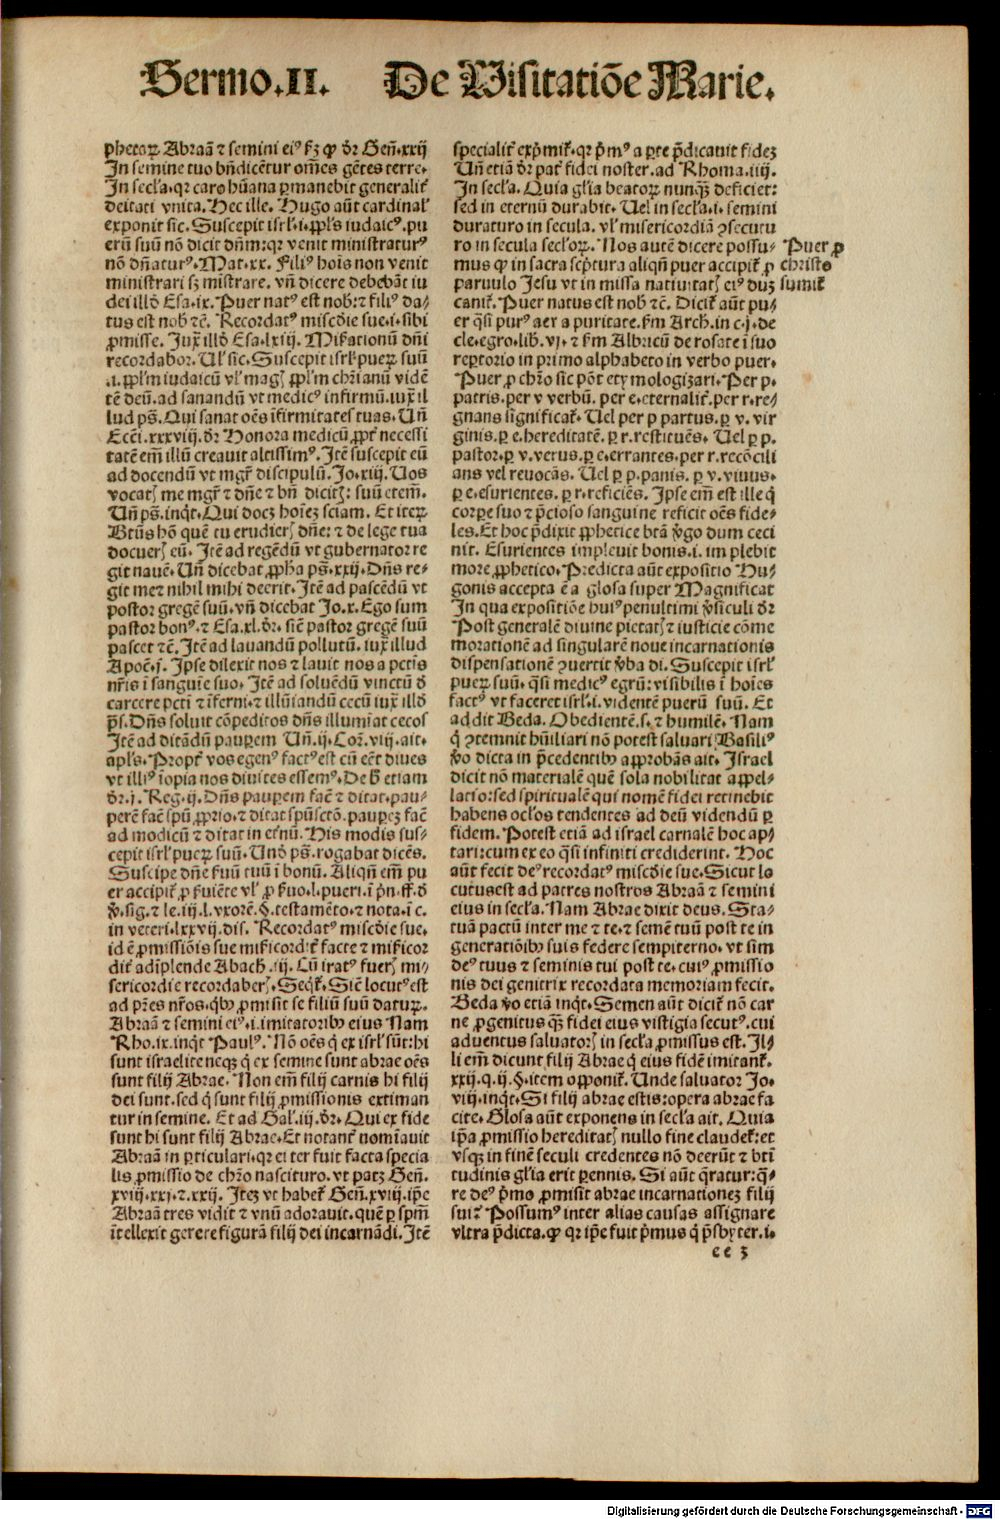 Sermo.II. De Visitatiōe Marie.
phetaꝝ Abraā ⁊ semini eiꝰ ẜꝫ ꝙ dr̄ Gen̄.xxij
In semine tuo bn̄dicētur om̄es gētes terre.
In secl'a.qr caro hūana ꝑmanebit generalit̄
deitati vnita. Hec ille. Hugo aūt cardinal'
exponit sic. Suscepit isrl'.i.ppl's iudaicꝰ.pu
erū suū nō dicit dn̄m:qr venit ministraturꝰ
nō dn̄aturꝰ.Mat.xx. Filiꝰ hoīs non venit
ministrari sꝫ mistrare. vn̄ dicere debebāt iu
dei illđ Esa.ix. Puer natꝰ est nob̄:⁊ filiꝰ da-
tus est nob̄ ⁊c̄. Recordatꝰ misc̄die sue.i.sibi
ꝓmisse. Iux̄ illđ Esa.lxiij. Miẜationū dn̄i
recordabor. Ul' sic. Suscepit isrl' pueꝝ suū
.i.ppl'm iudaicū vl' maḡ ppl'm chr̄ianū vidē
tē deū.ad sanandū vt medicꝰ infirmū.iux̄ il
lud ps̄. Qui sanat oēs īfirmitates tuas. Un̄
Ecc̄i.xxxviij.dr̄ Honora medicū ꝓpt̄ necessi
tatē em̄ illū creauit altissimꝰ. Itē suscepit eū
ad docendū vt mgr̄ discipulū. Io.xiij. Uos
vocatꝭ me mgr̄ ⁊ dn̄e ⁊ bn̄ dicitꝭ: suū etem̄.
Un̄ ps̄.inqt. Qui docꝫ hoīeꝫ sciam. Et iteꝝ
Btūs hō quē tu erudierꝭ dn̄e: ⁊ de lege tua
docuerꝭ eū. Itē ad regēdū vt gubernator re
git nauē. Un̄ dicebat ꝓpha ps̄.xxij. Dn̄s re-
git me⁊ nihil mihi deerit. Itē ad pascēdū vt
postor gregē suū.vn̄ dicebat Io.x. Ego sum
pastor bonꝰ.⁊ Esa.xl.dr̄. sic̄ pastor gregē suū
pascet ⁊c̄. Itē ad lauandū pollutū. iux̄ illud
Apoc̄.j. Ipse dilexit nos ⁊ lauit nos a pctīs
nr̄is ī sanguīe suo. Itē ad soluēdū vinctū đ
carcere pctī ⁊ īferni.⁊ illumīandū cecū iux̄ illđ
ps̄. Dn̄s soluit cōpeditos dn̄s illumīat cecos
Itē ad ditādū pauꝑem Un̄.ij.Cor̄.viij.ait.
apl's. Propt̄ vos egenꝰ factꝰ est cū eēt diues
vt illiꝰ īopia nos diuites essemꝰ. De ħ etiam
dr̄.j. Reg.ij. Dn̄s pauꝑem fac̄ ⁊ ditat.pau-
perē fac̄ spū ꝓprio.⁊ ditat spūsctō.pauꝑeꝫ fac̄
ad modicū ⁊ ditat in et̄nū. His modis sus-
cepit isrl' pueꝝ suū. Unđ ps̄.rogabat dicēs.
Suscipe dn̄e ẜuū tuū ī bonū. Aliqn̄ em̄ pu
er accipit̄ ꝓ ẜuiēte vl' ꝓ ẜuo.l.pueri.ī pn̄.ff.đ
v̄.sig.⁊ le.iij.l.vxorē.§.testamēto.⁊ nota.ī c.
in veteri.lxxvij.dis. Recordatꝰ misc̄die sue.
id ē ꝓmissiōis sue miẜicordit̄ facte ⁊ miẜicor
dit̄ adīplende Abach̄.iij. Cū iratꝰ fuerꝭ mi-
sericordie recordaberꝭ. Seqt̄. Sic̄ locutꝰ est
ad pr̄es nr̄os.qbꝫ ꝓmisit se filiū suū datuꝝ.
Abraā ⁊ semini eiꝰ.i.imitatoribꝫ eius Nam
Rho.ix.inqt Paulꝰ. Nō oēs q̄ ex isrl' sūt:hi
sunt israelite neqꝫ q̄ ex semine sunt abrae oēs
sunt filij Abrae. Non em̄ filij carnis hi filij
dei sunt.sed q̄ sunt filij ꝓmissionis extiman
tur in semine. Et ad Gal'.iij.dr̄. Qui ex fide
sunt hi sunt filij Abrae. Et notant̄ nomīauit
Abraā in ꝑticulari.qr ei ter fuit facta specia
lis ꝓmissio de chr̄o nascituro.vt patꝫ Gen̄.
xviij.xxj.⁊.xxij. Iteꝫ vt habet̄ Gen̄.xviij.ip̄e
Abraā tres vidit ⁊ vnū adorauit.quē ꝑ spm̄
ītellexit gerere figurā filij dei incarnādi. Itē
specialit̄ exp̄mit̄.qr p̄mꝰ a ꝑte p̄dicauit fideꝫ
Un̄ etiā dr̄ pat̄ fidei noster.ad Rhoma.iiij.
In secl'a. Quia gl'ia beatoꝝ nunqꝫ deficiet:
sed in eternū durabit. Uel in secl'a.i. semini
duraturo in secula. vl' misericordiā ꝯsecutu
ro in secula secl'oꝝ. Nos autē dicere possu-
mus ꝙ in sacra scp̄tura aliqn̄ puer accipit̄ ꝓ
paruulo Iesu vt in missa natiuitatꝭ eiꝰ duꝫ
canit̄. Puer natus est nob̄ ⁊c̄. Dicit̄ aūt pu-
er qsi purꝰ aer a puritate.ẜm Arch̄.in c.j.de
cle.egro.lib.vj.⁊ ẜm Albricū de rosate ī suo
reꝑtorio in primo alphabeto in verbo puer.
Puer ꝓ chr̄o sic pōt etymologiꝫari. Per p.
patris.per v verbū. per e.eternalit̄.per r.re-
gnans significat̄. Uel per p partus.ꝑ v. vir
ginis.ꝑ e.hereditatē.ꝑ r.restituēs. Uel ꝑ p.
pastor.ꝑ v.verus.ꝑ e.errantes.per r.recōcili
ans vel reuocās. Uel ꝑ p.panis.ꝑ v.viuus.
ꝑ e.esurientes.ꝑ r.reficiēs. Ipse em̄ est ille q̄
corꝑe suo ⁊ p̄cioso sanguine reficit oēs fide-
les. Et hoc p̄dixit ꝓphetice btā v̄go dum ceci
nit. Esurientes impleuit bonis.i.im plebit
more ꝓphetico. Predicta aūt expositio Hu-
gonis accepta ē a glosa super Magnificat
In qua expositiōe huiꝰ penultimi v̄siculi dr̄
Post generalē diuine pietatꝭ ⁊ iusticie cōme
morationē ad singularē noue incarnationis
dispensationē ꝯuertit v̄ba di. Suscepit isrl'
pueꝝ suū.qsi medicꝰ egrū:visibilis ī hoīes
factꝰ vt faceret isrl'.i.videntē puerū suū. Et
addit Beda. Obedientē.s.⁊ humilē. Nam
q̄ ꝯtemnit hūiliari nō potest saluari Basiliꝰ
v̄o dicta in p̄cedentibꝫ approbās ait. Israel
dicit nō materialē quē sola nobilitat appel-
latio:sed spiritualē qui nomē fidei retinebit
habens ocl'os tendentes ad deū videndū ꝑ
fidem. Potest etiā ad israel carnalē hoc ap-
tari:cum ex eo qsi infiniti crediderint. Hoc
aūt fecit deꝰ recordatꝰ misc̄die sue. Sicut lo
cutusest ad patres nostros Abraā ⁊ semini
eius in secl'a. Nam Abrae dixit deus. Sta-
tuā pactū inter me ⁊ te.⁊ semē tuū post te in
generatiōibꝫ suis federe sempiterno. vt sim
deꝰ tuus ⁊ seminis tui post te.cuiꝰ ꝓmissio
nis dei genitrix recordata memoriam fecit.
Beda v̄o etiā inqt. Semen aūt dicit̄ nō car
ne ꝓgenitus qꝫ fidei eius vistigia secutꝰ.cui
aduentus saluatorꝭ in secl'a ꝓmissus est. Il-
li em̄ dicunt filij Abrae q̄ eius fidē imitant̄.
xxij.q.ij.§.item opponit̄. Unde saluator Io.
viij.inqt. Si filij abrae estis:opera abrae fa
cite. Glosa aūt exponens in secl'a ait. Quia
ip̄a ꝓmissio hereditatꝭ nullo fine claudet̄:et
vsqꝫ in finē seculi credentes nō deerūt ⁊ btī
tudinis gl'ia erit ꝑennis. Si aūt q̄ratur:q̄-
re deꝰ p̄mo ꝓmisit abrae incarnationeꝫ filij
sui? Possumꝰ inter alias causas assignare
vltra p̄dicta.ꝙ qr ip̄e fuit p̄mus q̄ p̄sbyter.i.
Puer ꝓ
christo
sumit̄
ee 3
Digitalisierung gefördert durch die Deutsche Forschungsgemeinschaft - DFG